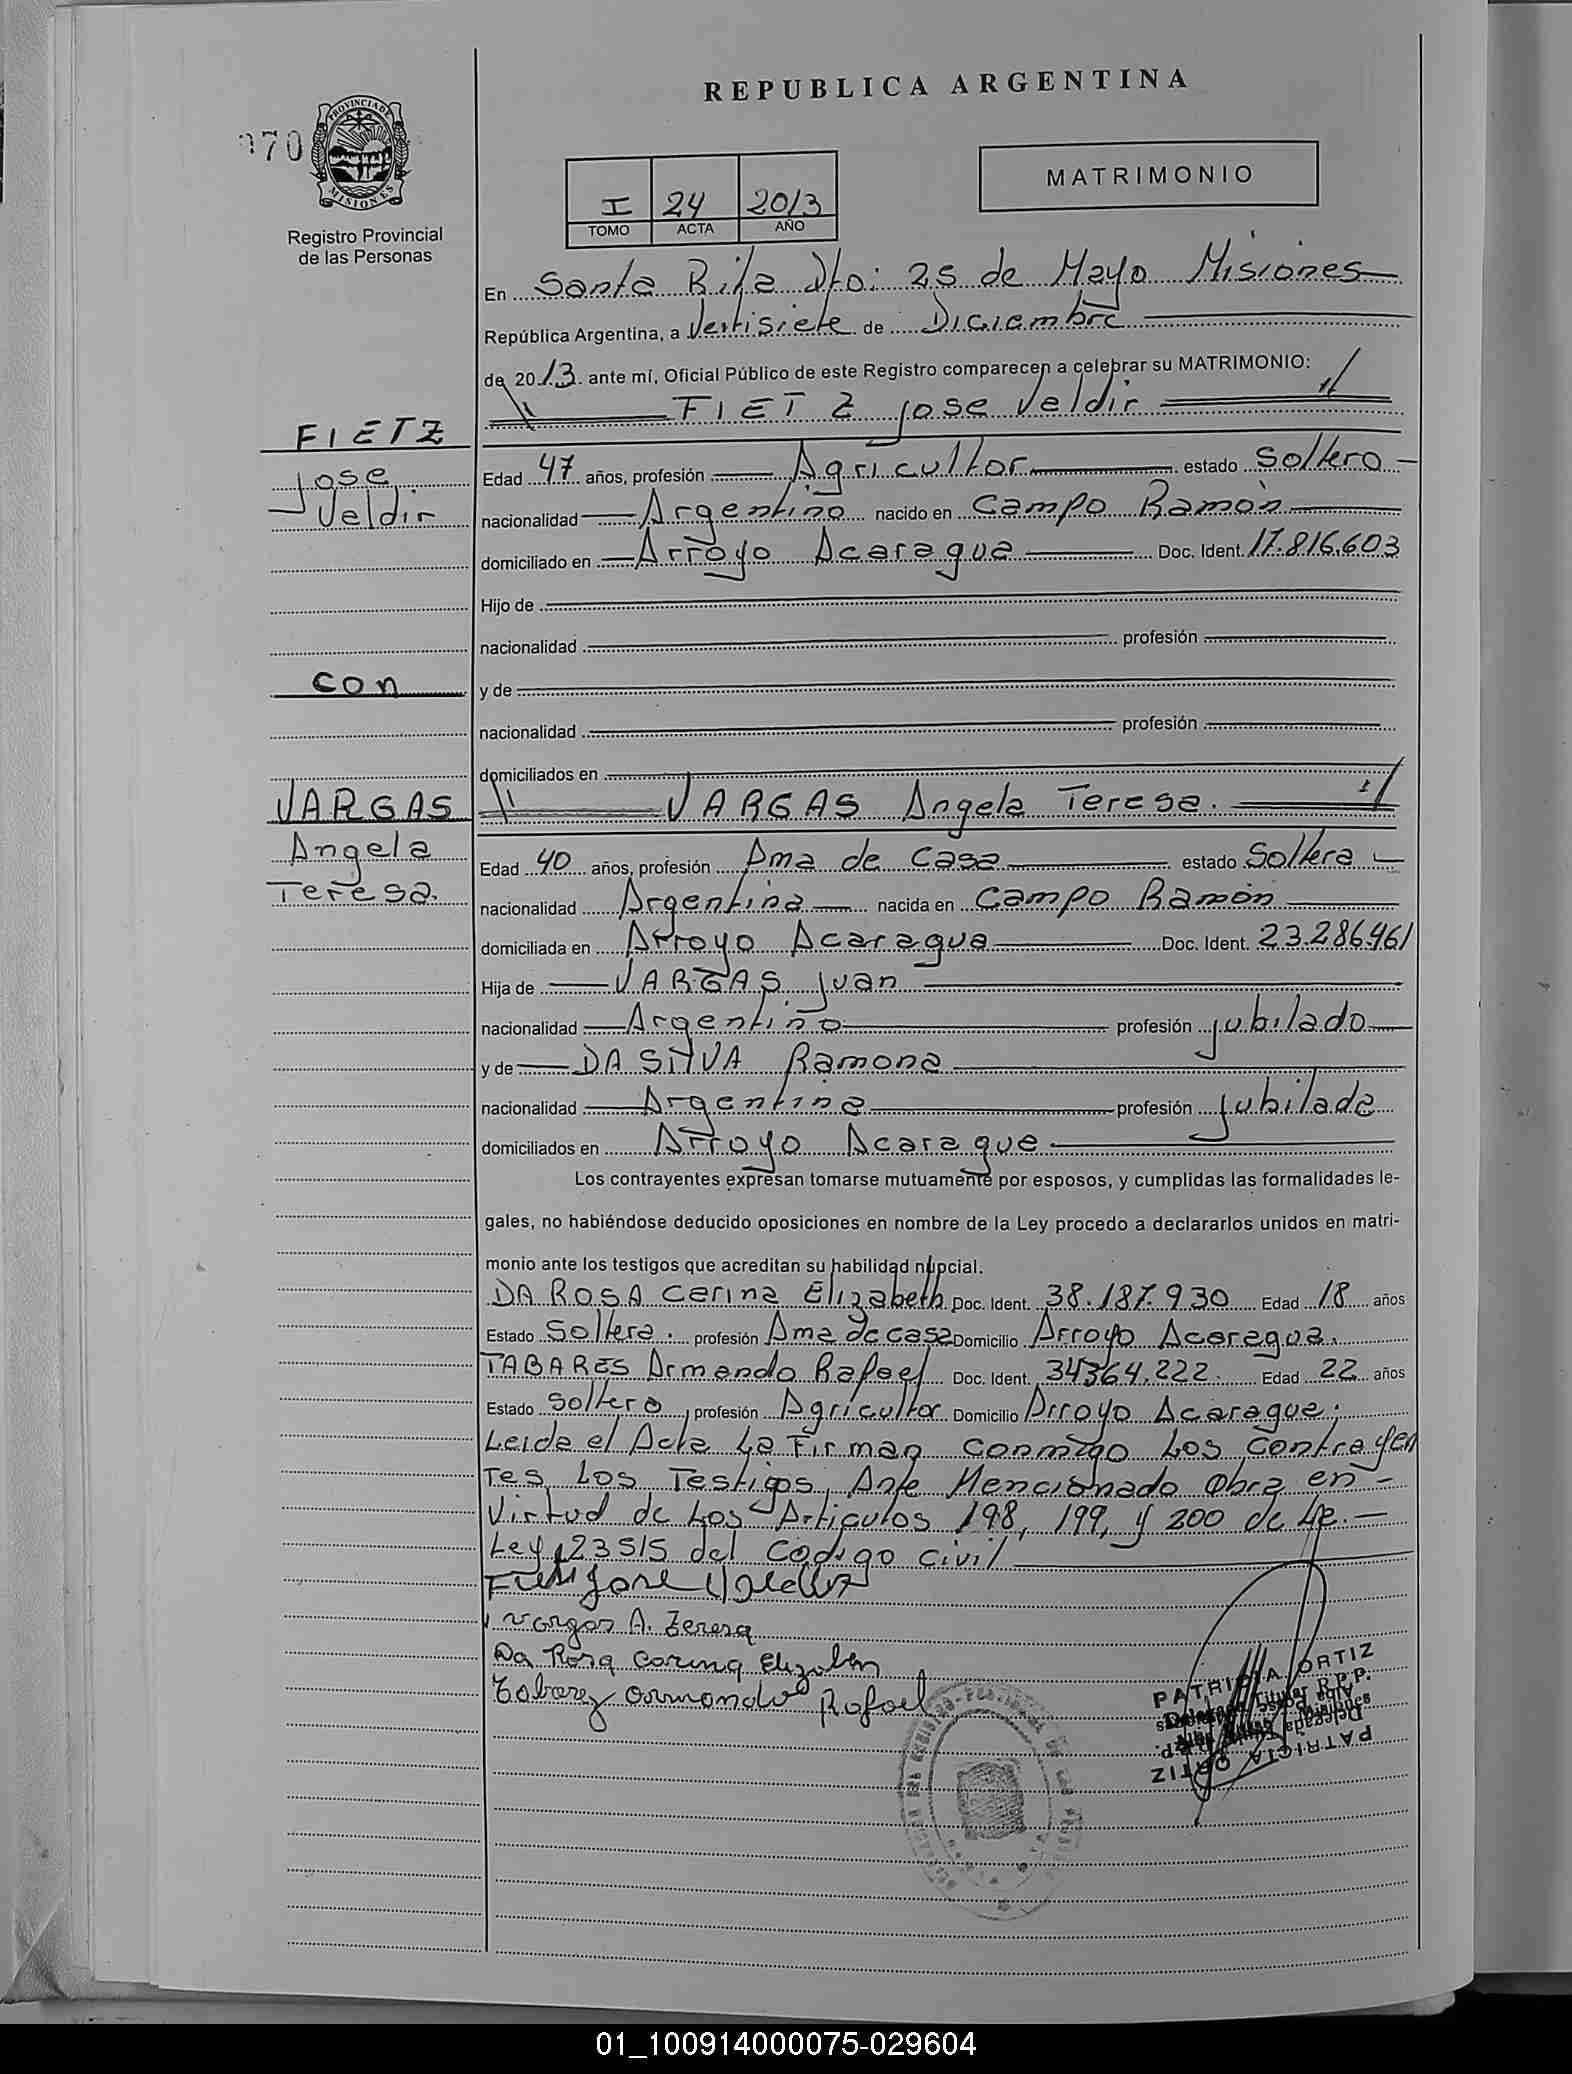 REPUBLICA ARGENTINA
070
PROVINCIA DE
MISIONES
Registro Provincial
de las Personas
MATRIMONIO
I 24 2013
TOMO ACTA AÑO
En Santa Rita Dto: 25 de Mayo Misiones
República Argentina, a Veitisiete de Diciembre
de 2013 ante mí, Oficial Público de este Registro comparecen a celebrar su MATRIMONIO:
FIETZ Jose Veldir
FIETZ
Jose
Veldir
Edad 47 años, profesión Agricultor estado Soltero
nacionalidad Argentino nacido en Campo Ramòn
domiciliado en Arroyo Acaragua Doc. Ident. 17.816.603
Hijo de
nacionalidad profesión
con
y de
nacionalidad profesión
domiciliados en
VARGAS Angela Teresa.
VARGAS
Angela
Teresa.
Edad 40 años, profesión Ama de Casa estado Soltera
nacionalidad Argentina nacida en Campo Ramòn
domiciliada en Arroyo Acaragua Doc. Ident. 23.286.461
Hija de VARGAS Juan
nacionalidad Argentino profesión Jubilado
y de DA SILVA Ramona
nacionalidad Argentina profesión Jubilada
domiciliados en Arroyo Acaragua.
Los contrayentes expresan tomarse mutuamente por esposos, y cumplidas las formalidades le-
gales, no habiéndose deducido oposiciones en nombre de la Ley procedo a declararlos unidos en matri-
monio ante los testigos que acreditan su habilidad nupcial.
DA ROSA Carina Elizabeth Doc. Ident. 38.187.930 Edad 18 años
Estado Soltera. profesión Ama de casa Domicilio Arroyo Acaragua.
TABARES Armando Rafael Doc. Ident. 34364.222. Edad 22 años
Estado Soltero, profesión Agricultor Domicilio Arroyo Acaragua.
Leida el Acta La Firman conmigo Los Contrayen
Tes Los Testigos, Ante Mencionado Obra en-
Virtud de Los Articulos 198, 199, y 200 de La.-
Ley 23515 del Codigo Civil
Fietz Jose
Vargas A. Teresa
Da Rosa Carina Elizabeth
Tabarez Armando Rafael
PATRICIA ORTIZ
Delegada Titular R.P.P.
PATRICIA ORTIZ
01_100914000075-029604